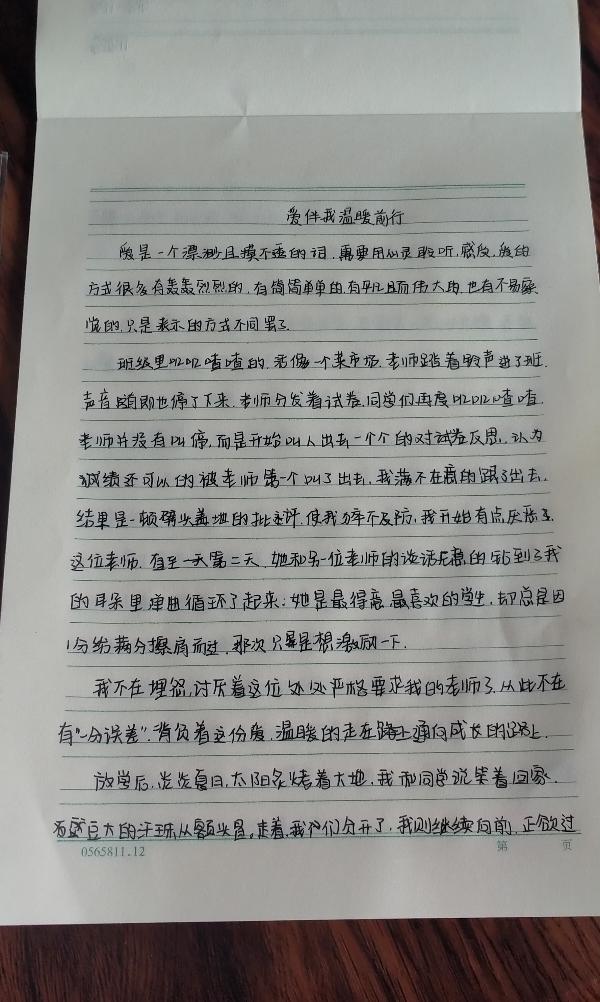 爱伴我温暖前行
爱是一个漂渺且摸不透的词,需要用心灵聆听,感受,爱的
方式很多有轰轰烈烈的,有简简单单的,有平凡且而伟大的,也有不易察
觉的,只是表示的方式不同罢了.
班级里叽叽喳喳的,活像一个菜市场,老师踏着铃声进了班,
声音随即也停了下来,老师分发着试卷,同学们再度叽叽喳喳,
老师并没有叫停,而是开始叫人出去一个个的对试卷反思,认为
成绩还可以的被老师第一个叫了出去,我满不在意的跟了出去,
结果是一顿劈头盖地的批评,使我猝不及防,我开始有点厌恶
这位老师,直至第二天,她和另一位老师的谈话无意的钻到了我
的耳朵里单曲循环了起来:她是最得意,最喜欢的学生,却总是因
1分给满分擦肩而过,那次只是想激励一下.
我不在埋怨,讨厌着这位处处严格要求我的老师了,从此不在
有"一分误差",背负着这份爱,温暖的走在通向成长的路上.
放学后,炎炎夏日,太阳炙烤着大地,我和同学说笑着回家,
豆大的汗珠从额头冒,走着,我们分开了,我则继续向前,正欲过
0565811.12 第 页